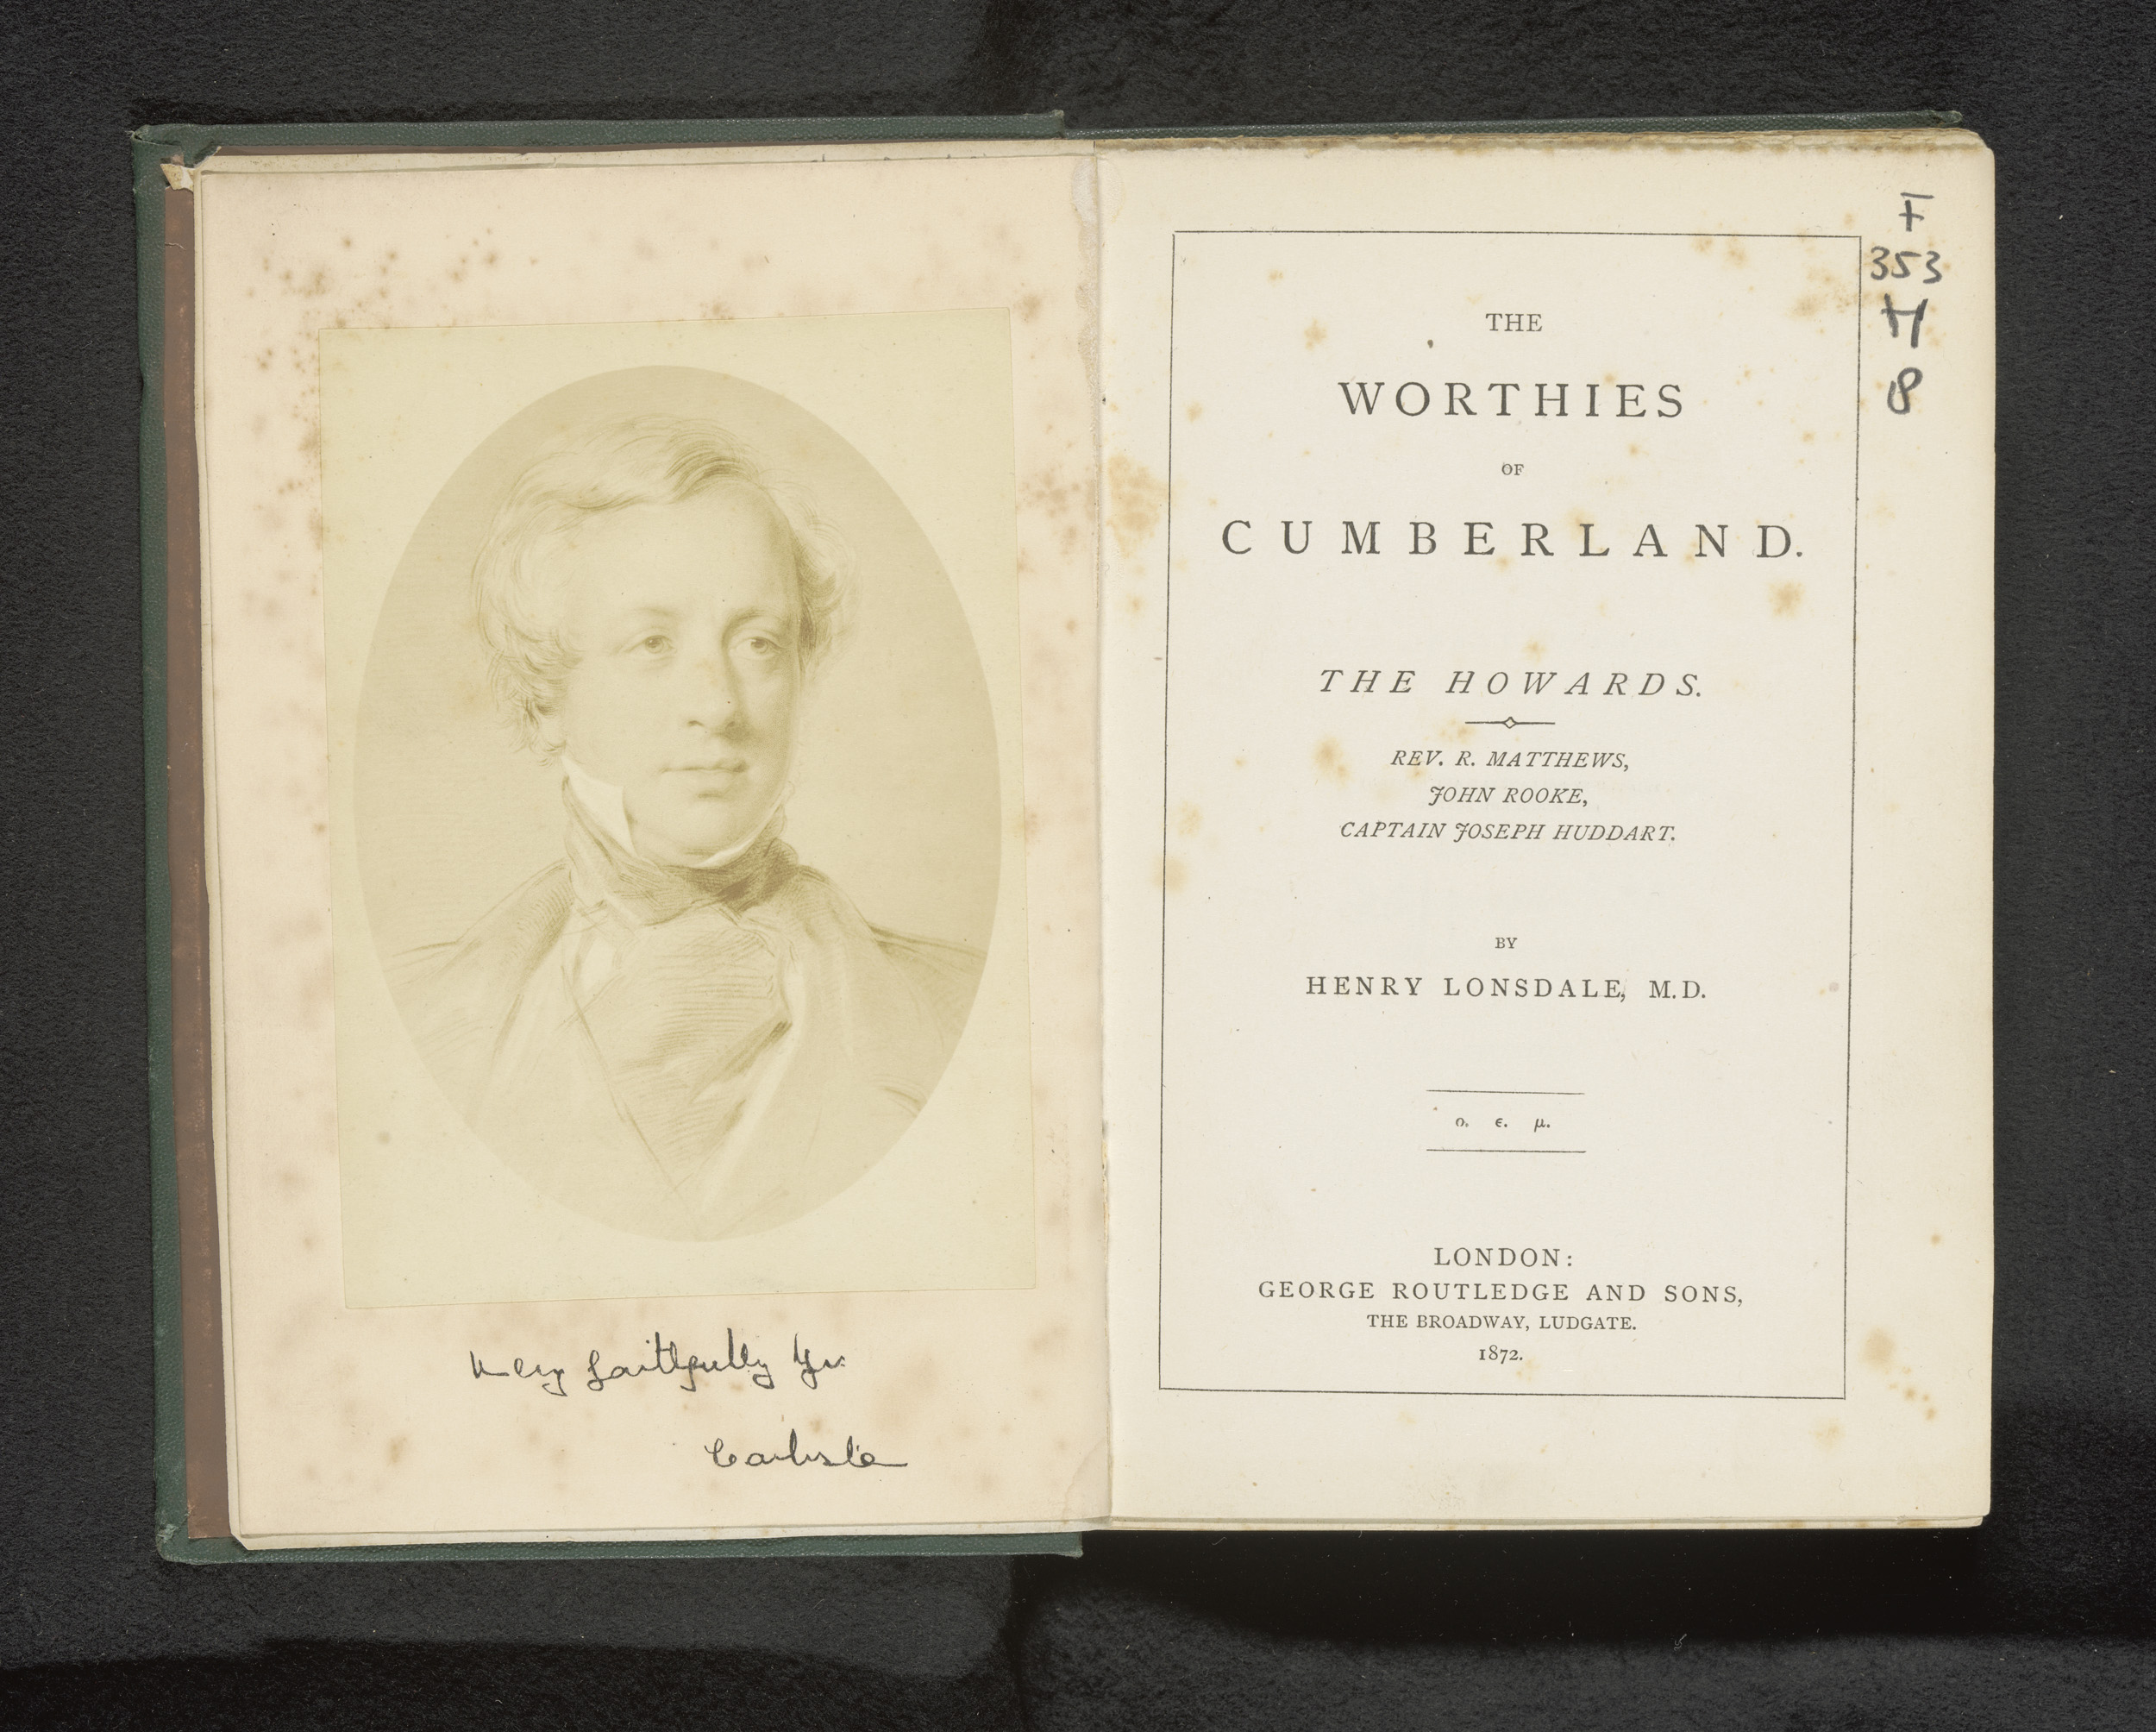 Very faithfully Yrs
Carlisle
F
353
H
8
THE
WORTHIES
OF
CUMBERLAND.
THE HOWARDS.
REV. R. MATTHEWS,
JOHN ROOKE,
CAPTAIN JOSEPH HUDDART.
BY
HENRY LONSDALE, M.D.
ο. ε. μ.
LONDON:
GEORGE ROUTLEDGE AND SONS,
THE BROADWAY, LUDGATE.
1872.